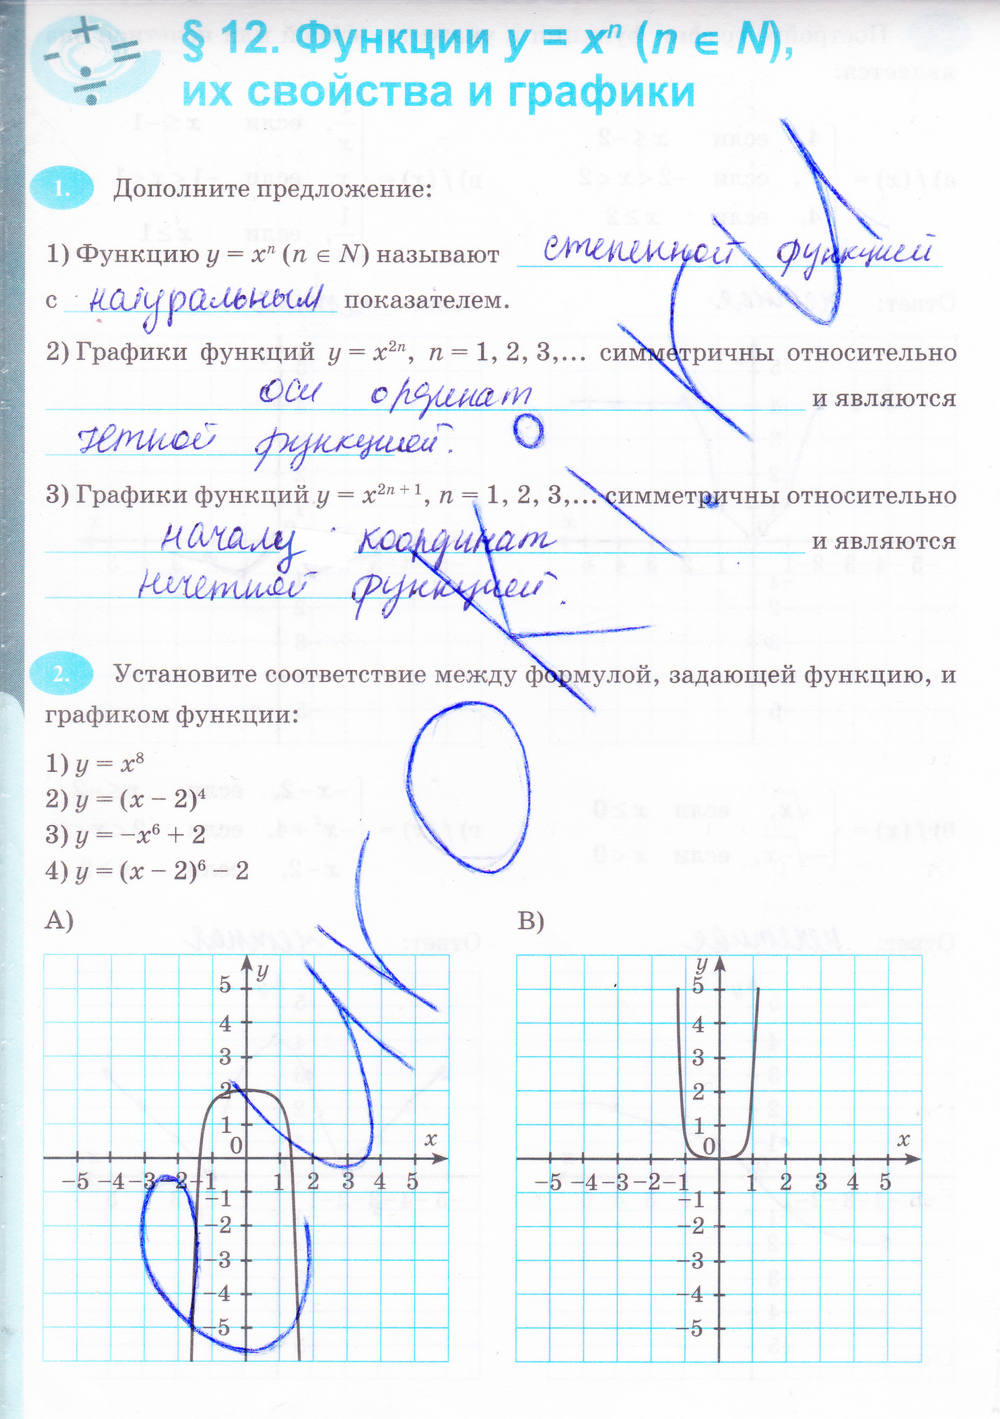 § 12. Функции y = xⁿ (n ∈ N),
их свойства и графики
1. Дополните предложение:
1) Функцию y = xⁿ (n ∈ N) называют степенной функцией
с натуральным показателем.
2) Графики функций y = x²ⁿ, n = 1, 2, 3,... симметричны относительно
оси ординат и являются
четной функцией.
3) Графики функций y = x²ⁿ⁺¹, n = 1, 2, 3,... симметричны относительно
началу координат и являются
нечетной функцией.
2. Установите соответствие между формулой, задающей функцию, и
графиком функции:
1) y = x⁸
2) y = (x − 2)⁴
3) y = −x⁶ + 2
4) y = (x − 2)⁶ − 2
А) В)
y y
5 5
4 4
3 3
2 2
1 1
0 x 0 x
−5 −4 −3 −2 −1 1 2 3 4 5 −5 −4 −3 −2 −1 1 2 3 4 5
−1 −1
−2 −2
−3 −3
−4 −4
−5 −5